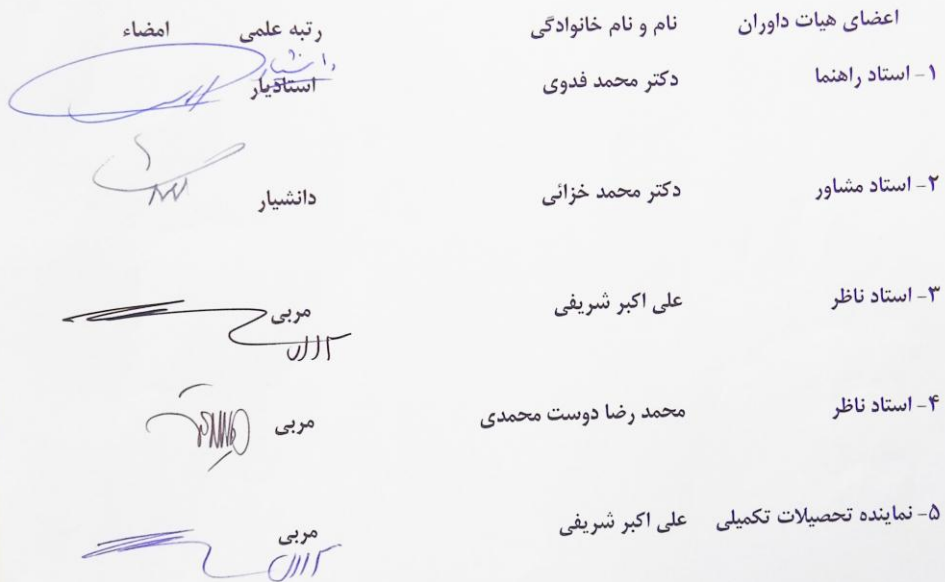 اعضای هیات داوران نام و نام خانوادگی رتبه علمی امضاء
دانشیار
۱- استاد راهنما دکتر محمد فدوی استادیار
۲- استاد مشاور دکتر محمد خزائی دانشیار
۳- استاد ناظر علی اکبر شریفی مربی
۴- استاد ناظر محمد رضا دوست محمدی مربی
۵- نماینده تحصیلات تکمیلی علی اکبر شریفی مربی